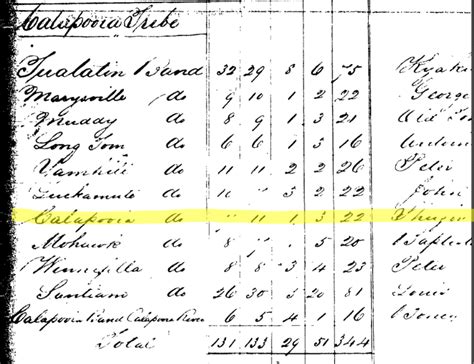 Calapooia Tribe
Tualatin Band 32 29 8 6 75
Marysville do 9 10 1 2 22 George
Muddy do 8 9 1 3 21
Long Tom do 6 6 1 3 16
Yamhill do 11 11 2 2 26 Peter
Luckamute do 10 " 3 2 22 John
Calapooia do " 11 1 3 22
Mohawk do 8 " 5 20 Baptiste
Winnefilla do 8 8 3 4 23 Peter
Santiam do 26 30 5 20 81 Louis
Calapooia Band Calapooia River 6 5 4 1 16 Jones
Total 131 133 29 51 344